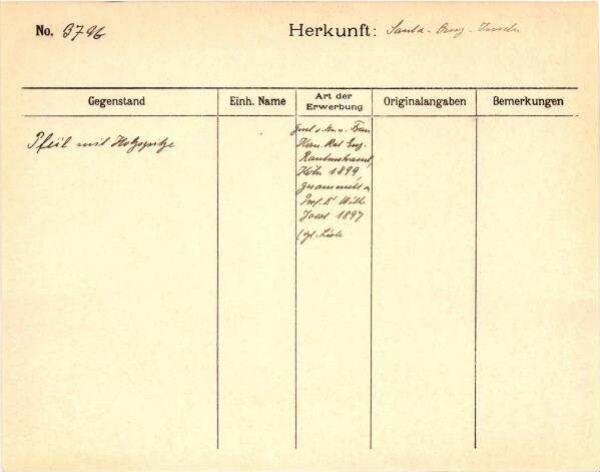 No. 3796
Herkunft: Santa-Cruz-Inseln
Gegenstand
Einh. Name
Art der
Erwerbung
Originalangaben
Bemerkungen
Pfeil mit Holzspitze
Frau
Eug.
Rautenstrauch,
Köln 1899,
gesammelt v.
Prof. Dr Wilh.
Joest 1897
(gl. Liste